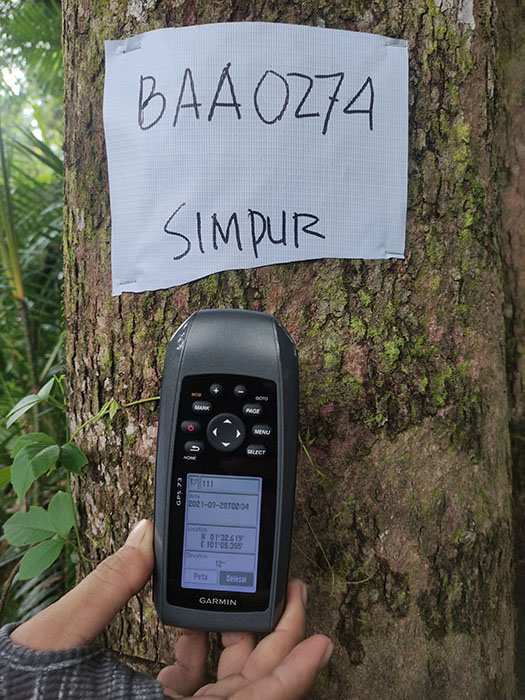 BAA0274
SIMPUR
MOB
GOTO
MARK
PAGE
MENU
SELECT
HOME
GPS 73
111
2021-09-20T02:34
Location
N 01°32.619'
E 101°05.355'
Elevation
12
Peta
Selesai
GARMIN